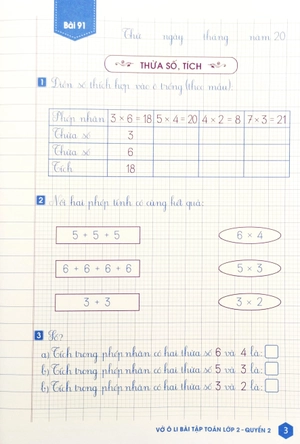 Bài 91
Thứ ngày tháng năm 20
THỪA SỐ, TÍCH
1 Điền số thích hợp vào ô trống (theo mẫu):
Phép nhân 3 × 6 = 18 5 × 4 = 20 4 × 2 = 8 7 × 3 = 21
Thừa số 3
Thừa số 6
Tích 18
2 Nối hai phép tính có cùng kết quả:
5 + 5 + 5 6 × 4
6 + 6 + 6 + 6 5 × 3
3 + 3 3 × 2
3 Số?
a) Tích trong phép nhân có hai thừa số 6 và 4 là:
b) Tích trong phép nhân có hai thừa số 5 và 3 là:
b) Tích trong phép nhân có hai thừa số 3 và 2 là:
VỞ Ô LI BÀI TẬP TOÁN LỚP 2 - QUYỂN 2 3